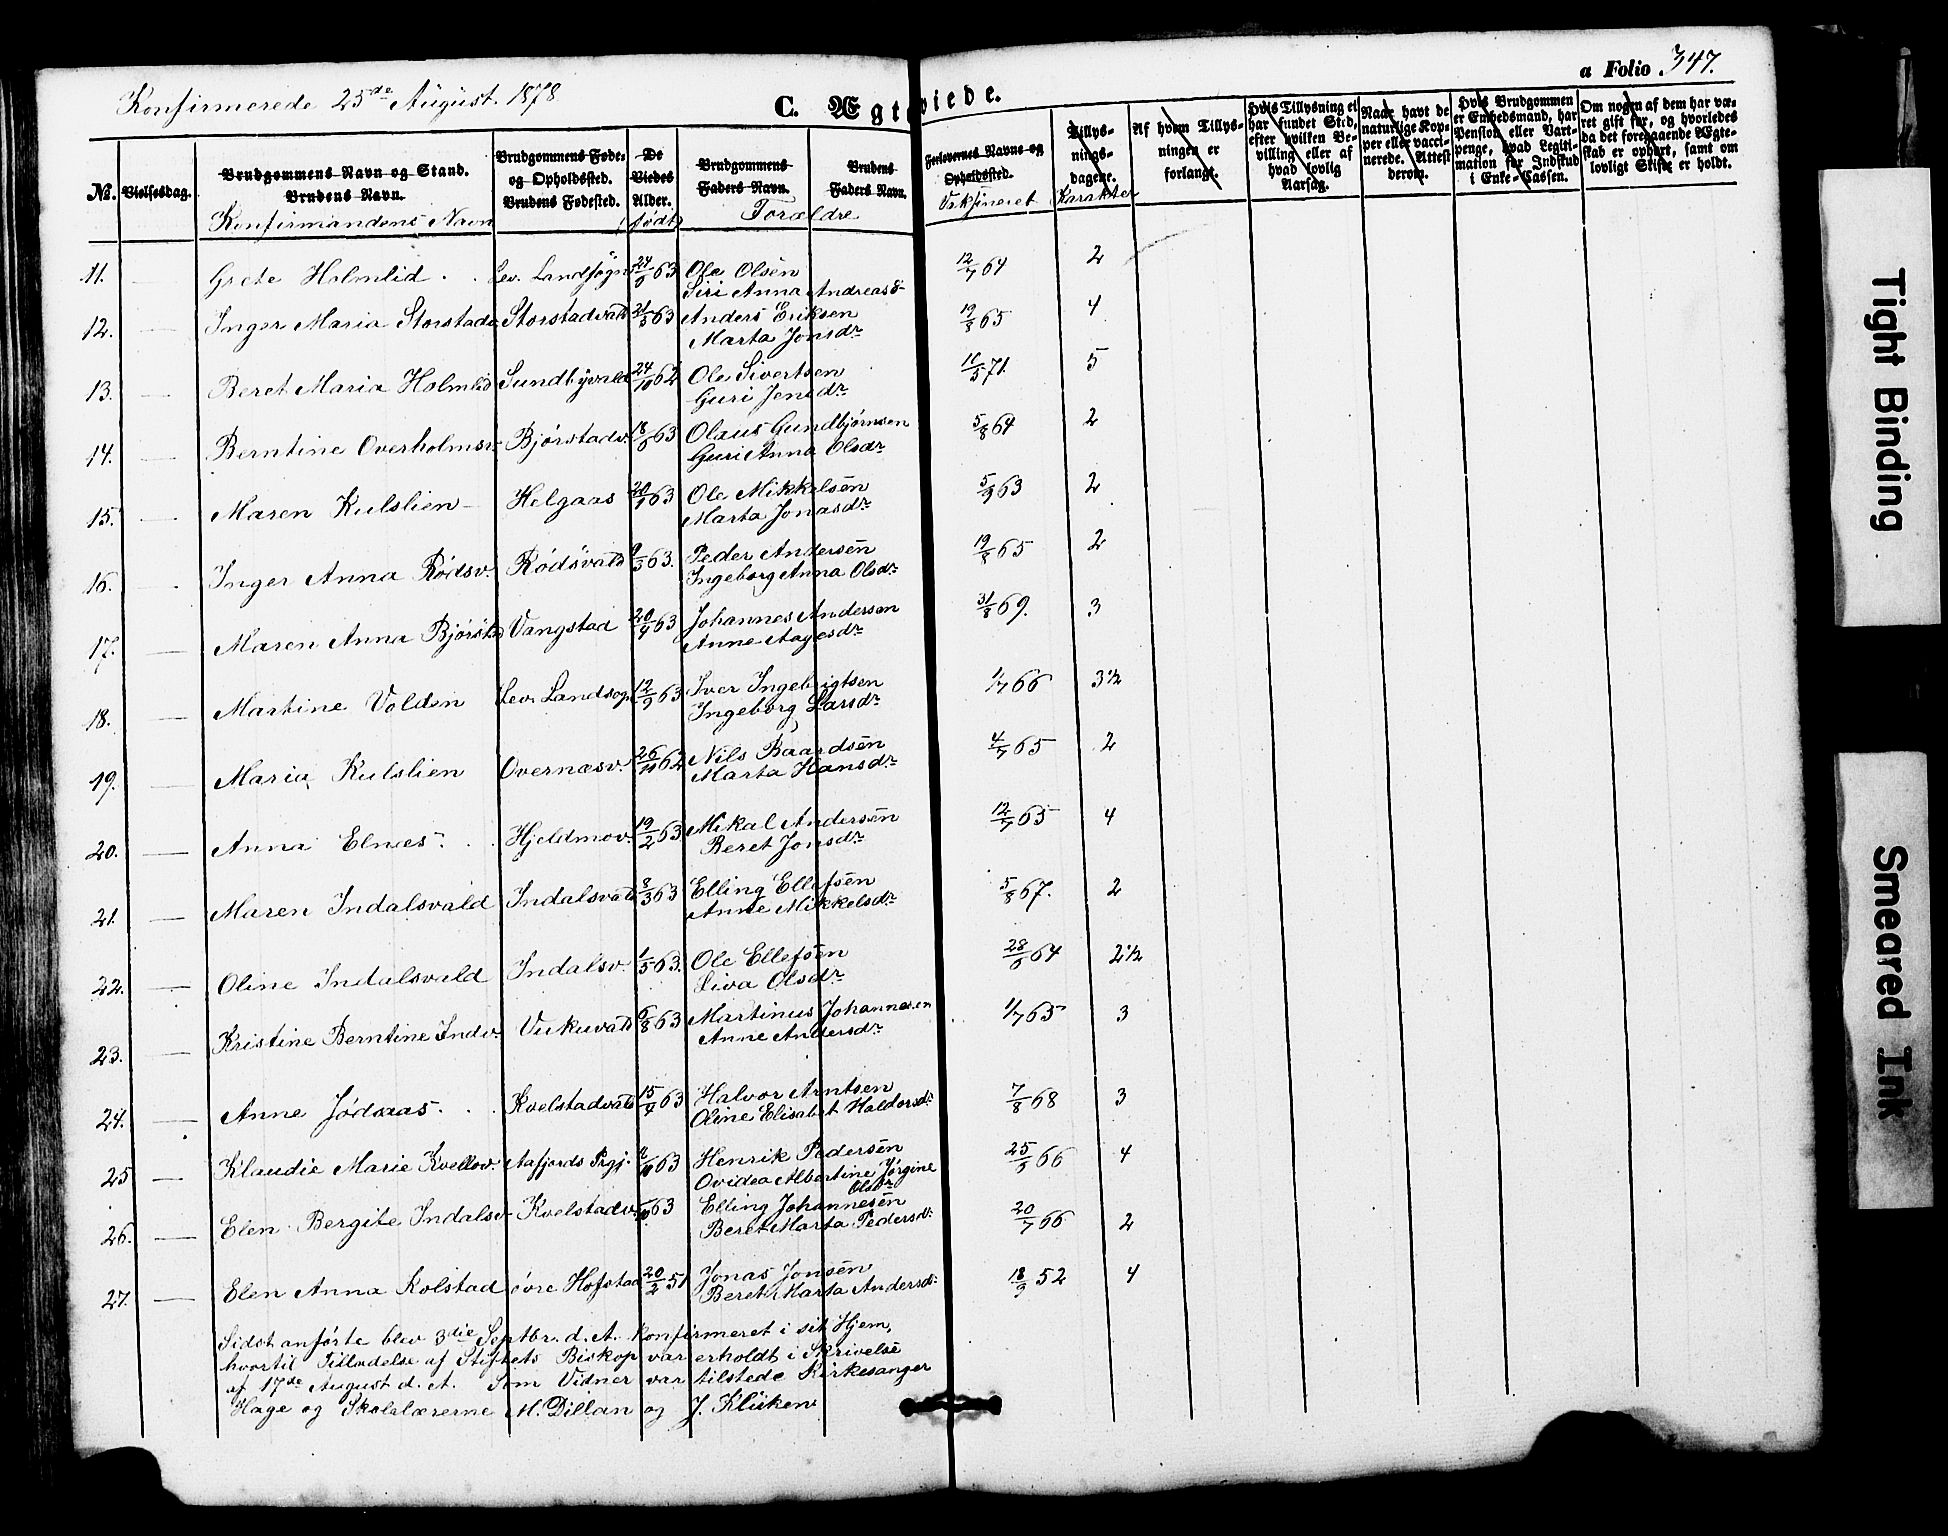 Konfirmerede 25de August. 1878
C. Ægteviede.
a Folio 347.
No. Vielsesdag. Brudgommens Navn og Stand. Brudens Navn. Konfirmandens Navn
Brudgommens Føde- og Opholdssted. Brudens Fødested.
De Viedes Alder. født
Brudgommens Faders Navn. Brudens Faders Navn. Forældre
Forlovernes Navne og Opholdssted. Vaksineret
Tillys- nings- dagene. Karakter
Af hvem Tillys- ningen er forlangt.
Hvis Tillysning ei har fundet Sted, efter hvilken Be- villing eller af hvad lovlig Aarsag.
Naar havt de naturlige Kop- per eller vacci- nerede. Attest derom.
Hvis Brudgommen er Enkedsmand, har Pension eller Vart- penge, hvad Legiti- mation for Indskud i Enke-Cassen.
Om nogen af dem har væ- ret gift før, og hvorledes da det foregaaende Ægte- skab er ophørt, samt om lovligt Skifte er holdt.
11. Grete Holmlid Lev. Landsogn 63 Ole Olsen 12/7 64 2
Siri Anna Andreasd
12. Inger Maria Storstadv Storstadvald 21/5 63 Anders Eriksen 19/8 65 4
Marta Jonsdr
13. Beret Maria Holmlid Sundbyvald 24/10 62 Ole Sivertsen 16/5 71. 5
Guri Jensdr
14. Berntine Overholmsv. Bjørstadv. 63 Olaus Gundbjørnsen 5/8 64 2
Guri Anna Olsdr
15. Maren Kulslien Helgaas 63 Ole Mikkelsen 5/9 63 2
Marta Jonasdr
16. Inger Anna Rødsv. Rødsvald 9/3 63. Peder Andersen 19/8 65 2
Ingeborg Anna Olsdr
17. Maren Anna Bjørst Vangstad 63 Johannes Andersen 31/8 69. 3
Anne Aagesdr
18. Martine Volden Lev. Landsogn 12/9 63 Iver Ingebrigtsen 1/7 66 3 1/2
Ingeborg Larsdr
19. Maria Kulslien Overnæsv. 26/11 62 Nils Baardsen 4/7 65 2
Marta Hansdr
20. Anna Elnæs Hjeldmov. 19/2 63 Mikal Andersen 12/7 65 4
Beret Jonsdr
21. Maren Indalsvald Indalsvald 8/3 63 Elling Ellefsen 5/8 67. 2
Anne Mikkelsdr
22. Oline Indalsvald Indalsv. 1/5 63. Ole Ellefsen 28/6 64 2 1/2
Liva Olsdr
23. Kristine Berntine Indv. Vukuvald 6/8 63 Martinus Johannesen 1/7 65 3
Anne Andersdr
24. Anne Jødaas Kvelstadvald 63 Halvor Arntsen 7/8 68 3
Oline Elisabet Haldorsdr
25 Klaudie Marie Kvellov. Aafjords Prgj. 63 Henrik Pedersen 66 4
Ovidea Albertine Jørgine
Olsdr
26. Elen Bergite Indalsv. Kvelstadv. 63 Elling Johannesen 20/7 66 2
Beret Marta Pedersdr
27. Elen Anna Kolstad øvre Hofstad 20/2 51 Jonas Jonsen 18/9 52 4
Beret Marta Andersdr
Sidst anførte blev 3die Septbr. d. A. konfirmeret i sit Hjem,
hvortil Tilladelse af Stiftets Biskop var erholdt i Skrivelse
af 17de August d. A. Som Vidner var tilstede Kirkesanger
Hage og Skolelærerne M. Dillan og J. Klüken
Tight Binding
Smeared Ink